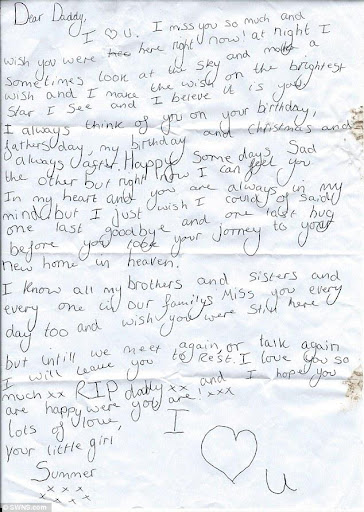 Dear Daddy,
I ♡ U. I miss you so much and
wish you were here right now! at night I
sometimes look at the sky and make a
wish and I make the wish on the brightest
star I see and I beleve it is you
I always think of you on your birthday,
fathers day, my birthday and christmas and
always easter. Happy some days Sad
the other but right now I can feel you
In my heart and you are always in my
mind but I just wish I could of said
one last goodbye and one last hug
before you take your jorney to your
new home in heaven.
I know all my brothers and sisters and
every one in our familys Miss you every
day too and wish you were still here
but untill we meet again, or talk again
I will leave you to Rest. I love you so
much xx RIP daddy xx and I hope you
are happy were you are! xxx
lots of love,
your little girl
Summer
x x x x
x x x x
I
♡
U
© SWNS.com